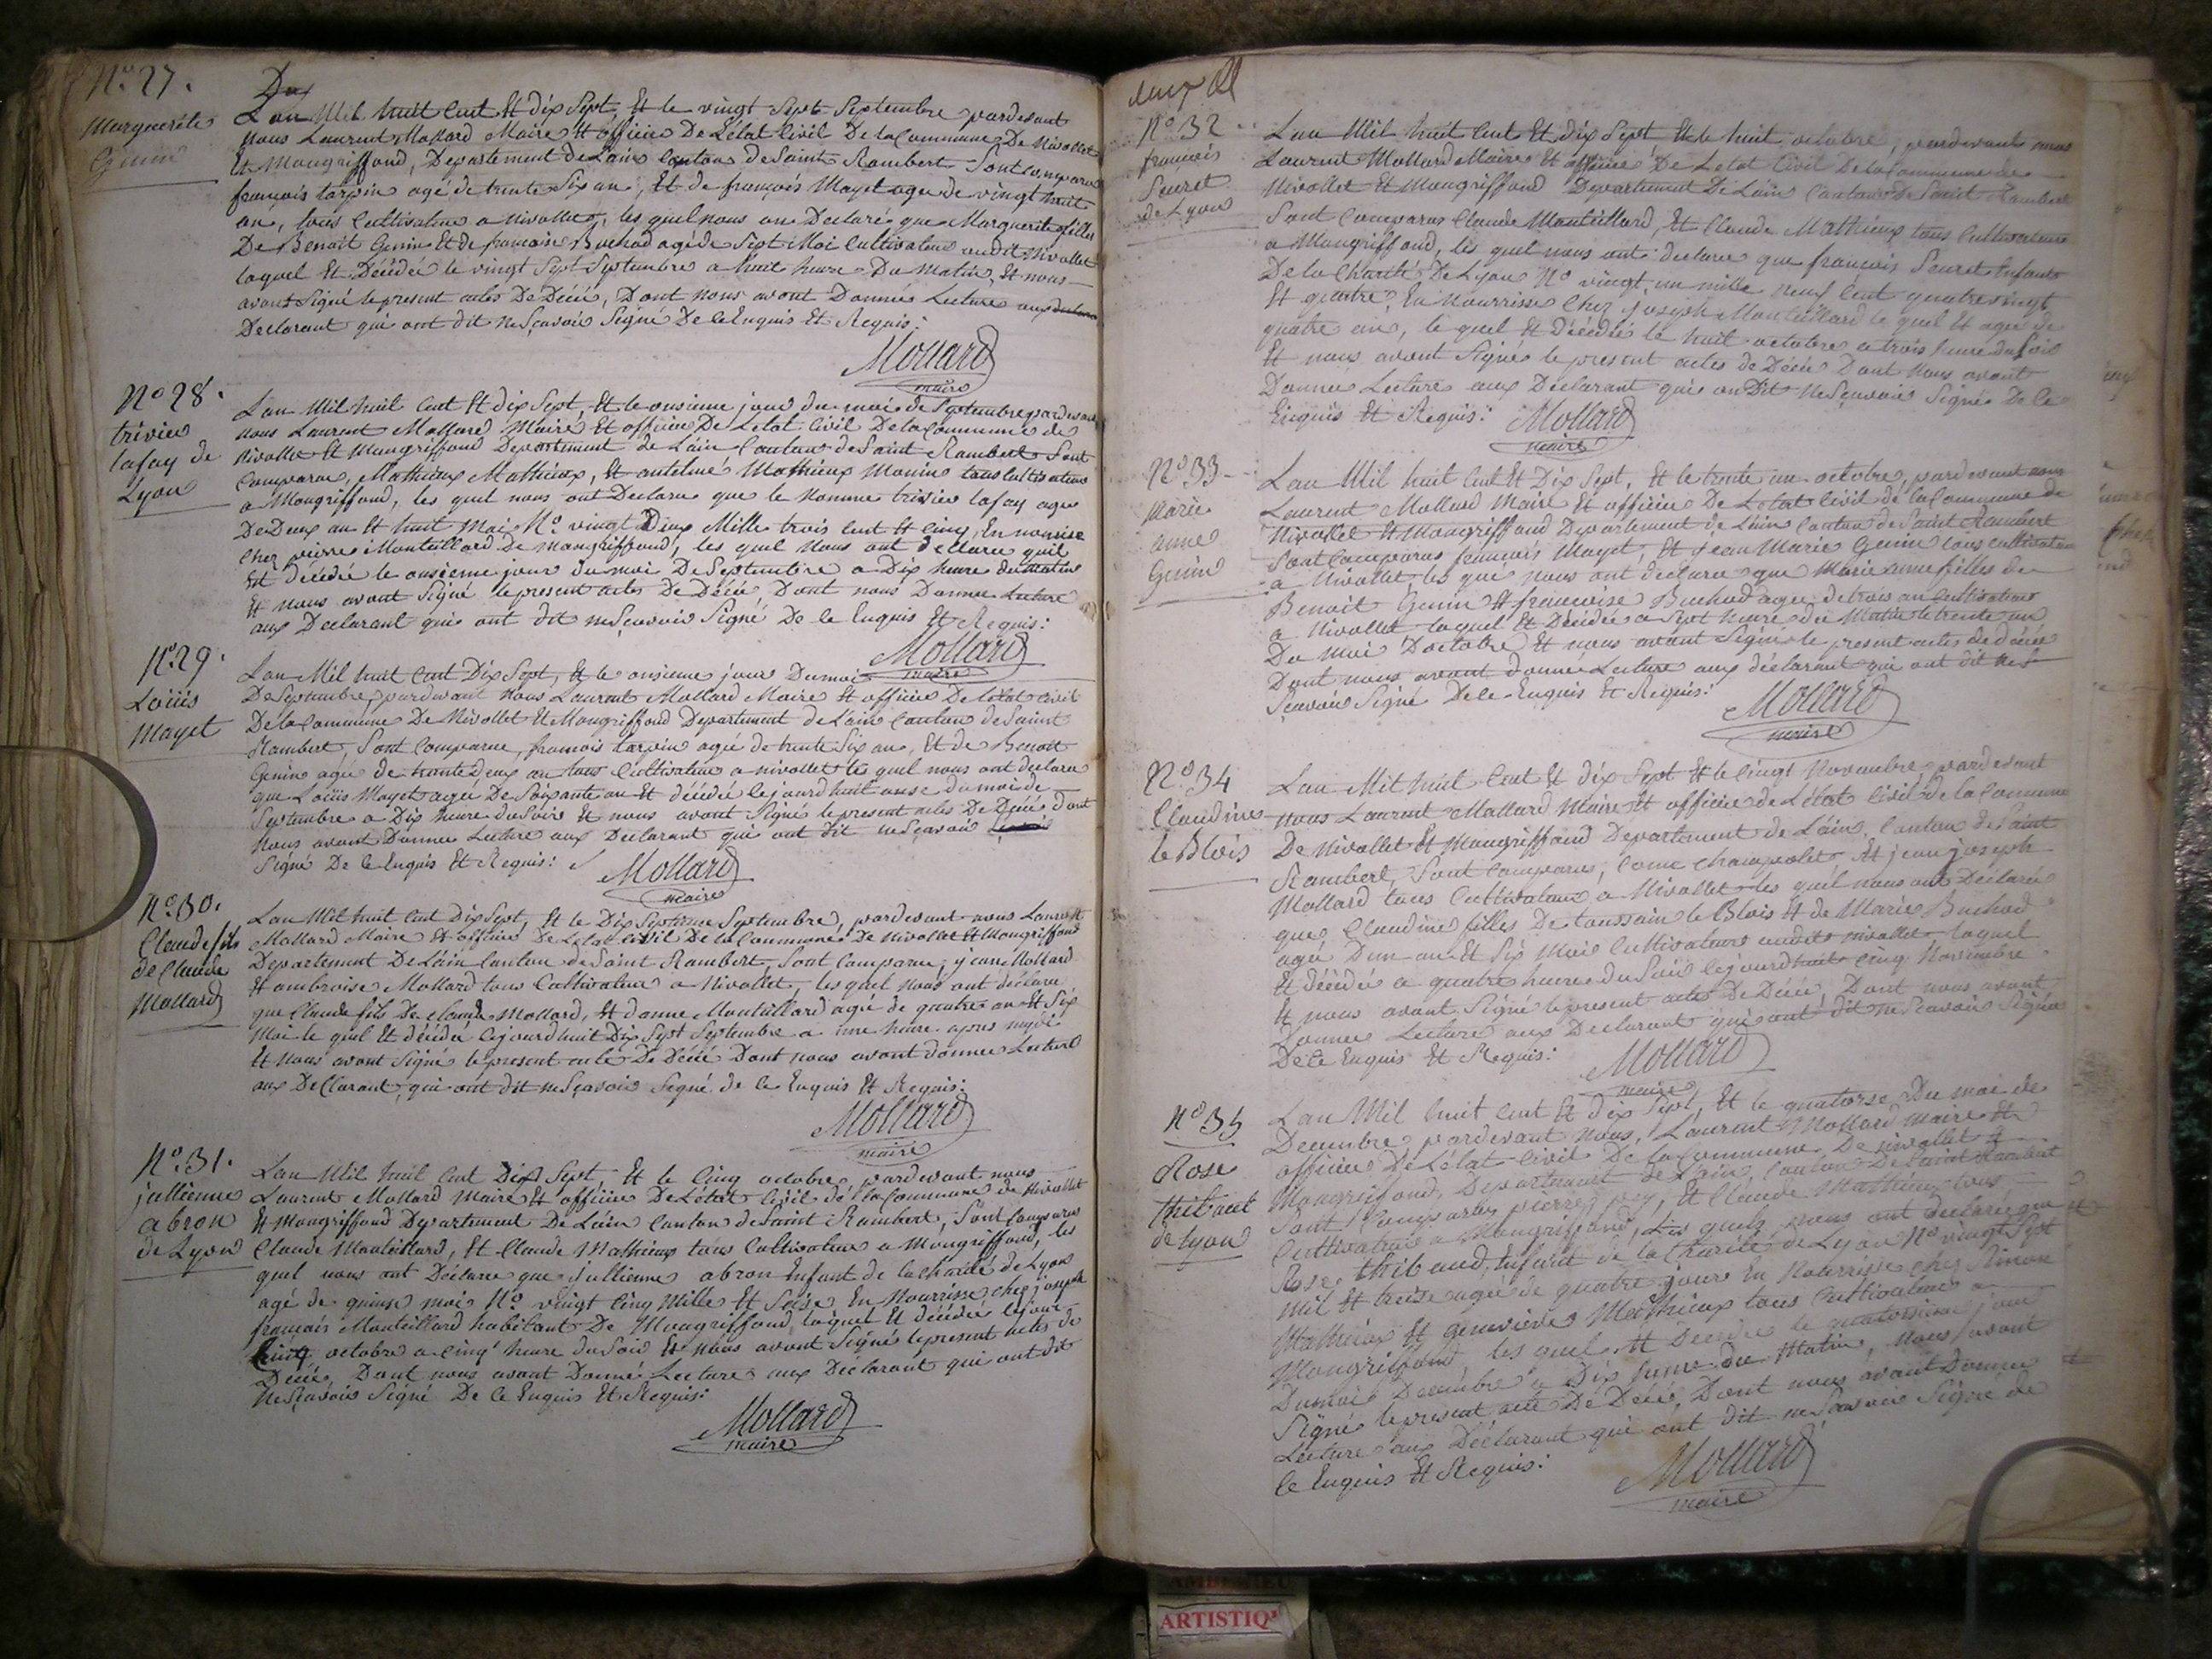 N.º 27.
Marguerite
Genin
Du
L'an Mil huit Cent Et dix Sept, Et le vingt Sept Septembre pardevant
nous Laurent Mollard Maire Et officier De L'état Civil De la Commune De Nivollet
Et Mongriffond, Departement de L'ain Canton de Saint Rambert Sont comparus
françois tarpin agé de trente Six an, Et de françois Mayet age de vingt huit
an, tous Cultivateur a nivollet, les quel nous on Declaré que Marguerite filles
De Benoit Genin Et de francoise Buchod agé de Sept Moi Cultivateur audit Nivollet
laquel Et Décédée le vingt Sept Septembre a huit heure Du Matin, Et nous
avont Signé le present actes De Décé, Dont nous avont Donnée Lecture aux
Declarant qui ont dit ne Sçavoir Signé De Ce Enquis Et Requis:
Mollard
maire
Nº 28.
trivier
lafay de
Lyon
L'an Mil huit Cent Et dix Sept, Et le onsieme jour du moi de Septembre pardevant
nous Laurent Mollard Maire Et officier De L'état Civil De la Commune de
Nivollet Et Mongriffond Departement de L'ain Canton de Saint Rambert Sont
Comparue, Mathieux Mathieux, Et anteleme Mathieux Monin tous Cultivateur
a Mongriffond, les quel nous ont Declaru que le Nomme trivier lafay age
De Deux an Et huit Moi Nº vingt Deux Mille trois Cent Et Cinq, En nourrise
Chez pierre Monteillard De mongriffond, les quel Nous ont declaru quil
Et décédée le onsieme jour du moi De Septembre a Dix heure du Matin
Et nous avont Signé le present actes De Décé, Dont nous Donnee Lecture
aux Declarant qui ont dit ne Sçavoir Signé De Ce Enquis Et Requis:
Mollard
maire
Nº 29.
Loüis
Mayet
L'an Mil huit Cent Dix Sept, Et le onsieme jour Du moi
De Septembre, pardevant Nous Laurent Mollard Maire Et officier De L'etat Civil
De la Commune De Nivollet Et Mongriffond Departement de L'ain Canton de Saint
Rambert, Sont Comparue, francois tarpin agée de trente Six an, Et de Benoit
Genin agée de trante Deux an tous Cultivateur a nivollet les quel nous ont declaru
que Loüis Mayet agée De Soixante an Et décédée le jourd huit onse du moi de
Septembre a Dix heure du Soir Et nous avont Signé le present actes De Decé dont
Nous avont Donnee Lecture aux Declarant qui ont dit ne Sçavoir
Signé De Ce Enquis Et Requis:
Mollard
maire
Nº 30.
Claude fils
de Claude
Mollard
L'an Mil huit Cent Dix Sept, Et le Dix Septieme Septembre, pardevant nous Laurent
Mollard Maire Et officier De L'etat Civil De la Commune De Nivollet Et Mongriffond
Departement De L'ain Canton de Saint Rambert, Sont Comparue, jean Mollard
Et ambroise Mollard tous Cultivateur a Nivollet, les quel Nous ont déclaru
que Claude fils De Claude Mollard, Et d'anne Monteillard agé de quatre an Et Six
Moi le quel Et décédée le jourd huit Dix Sept Septembre a une heure apres midi
Et Nous avont Signé le present acte De Décé Dont nous avont donnee Lecture
aux Declarant, qui ont dit ne Sçavoir Signé de Ce Enquis Et Requis:
Mollard
maire
Nº 31.
jullienne
abron
de Lyon
L'an Mil huit Cent Dix Sept, Et le Cinq octobre, pardevant nous
Laurent Mollard Maire Et officier De L'état Civil de la Commune de Nivollet
Et Mongriffond Departement De L'ain Canton de Saint Rambert, Sont Comparus
Claude Monteillard, Et Claude Mathieux tous Cultivateur a Mongriffond, les
quel nous ont Déclaru que jullienne abron Enfant de la charité de Lyon
agé de quinse moi Nº vingt Cinq Mille Et Seise En Nourrisse chez joseph
francois Monteillard habitant De Mongriffond laquel Et décédée le jour
Cinq octobre a Cinq heure du Soir Et nous avont Signé le present actes de
Décé, Dont nous avont Donné Lecture aux Déclarant qui ont dit
Ne Sçavoir Signé De Ce Enquis Et Requis:
Mollard
maire
Nº 32
francois
Seuret
de Lyon
L'an Mil huit Cent Et dix Sept Et le huit octobre, pardevant nous
Laurent Mollard Maire Et officier De L'etat Civil De la Commune de
Nivollet Et Mongriffond Departement De L'ain Canton de Saint Rambert
Sont Comparus Claude Monteillard, Et Claude Mathieux tous Cultivateur
a Mongriffond, les quel nous ont declaru que francois Seuret Enfant
De la Charité De Lyon Nº vingt, un mille neuf Cent quatre vingt
Et quatre, En Nourrisse Chez joseph Monteillard le quel Et agée de
quatre an, le quel Et Décédée le huit octobre a trois heure du Soir
Et nous avont Signé le present actes de Décé Dont Nous avont
Donnée Lecture aux Déclarant qui on Dit Ne Sçavoir Signé De Ce
Enquis Et Requis:
Mollard
maire
Nº 33
Marie
anne
Genin
L'an Mil huit Cent Et Dix Sept, Et le trente un octobre, pardevant nous
Laurent Mollard Maire Et officier De L'etat Civil de la Commune de
Nivollet Et Mongriffond Departement de L'ain Canton de Saint Rambert
Sont Comparus francois Mayet, Et jean Marie Genin tous cultivateur
a Nivollet, les qui nous ont declaru que Marie anne filles de
Benoit Genin Et francoise Buchod agée de trois an Cultivateur
a Nivollet laquel Et Décédée a Sept heure du Matin le trente un
Du moi D'octobre Et nous avont Signé le present actes de décé
Dont nous avont donnée Lecture aux déclarant qui ont dit Ne S
Sçavoir Signé De Ce Enquis Et Requis:
Mollard
maire
Nº 34
Claudine
le Blois
L'an Mil huit Cent Et dix Sept Et le Cingt Novembre pardevant
nous Laurent Mollard Maire Et officier de L'état Civil de la Commune
De Nivollet Et Mongriffond Departement de L'ain, Canton de Saint
Rambert, Sont Comparus, Come Champolet Et jean joseph
Mollard tous Cultivateur a Nivollet les quel nous ont Déclaru
que Claudine filles De toussain le Blois Et de Marie Buchod
agée D'un an Et Six Moi Cultivateur audit nivollet laquel
Et décédée a quatre heure du Soir le jourd huit Cinq Novembre
Et nous avont Signé le present actes De Décé, Dont nous avont
Donnee Lecture aux Declarant qui ont dit ne Scavoir Signé
De Ce Enquis Et Requis:
Mollard
maire
Nº 35
Rose
thibaut
de Lyon
L'an Mil huit Cent Et dix Sept, Et le quatorse Du moi de
Decembre pardevant Nous, Laurent Mollard Maire Et
officier De L'état Civil De la Commune De nivollet Et
Mongriffond, Departement de L'ain, Canton De Saint Rambert
Sont Comparus pierre pey, Et Claude Mathieux tous
Cultivateur a Mongriffond, Les quels nous ont declarée que
Rose thibaud, Enfant de la Charité de Lyon Nº vingt Sept
Mil Et treise agée de quatre jour En Nourrisse chez Simon
Mathieux Et genevieve Mathieux tous Cultivateur a
Mongriffond, les quel Et Decedée le quatorsieme jour
Du Moi Decembre a Dix heure du Matin, Nous avont
Signé le present acte De Décé, Dont nous avont Donnee
Lecture aux Déclarant qui ont dit ne Sçavoir Signé de
Ce Enquis Et Requis:
Mollard
maire
ARTISTIQ